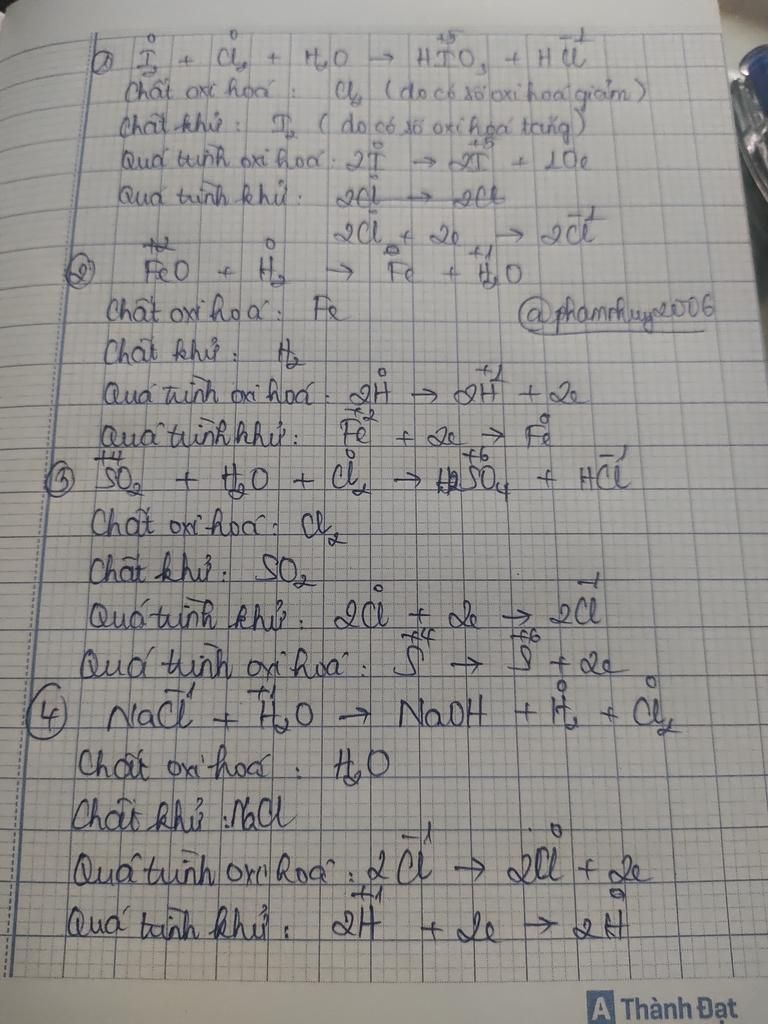 ① I₂⁰ + Cl₂⁰ + H₂O → HI⁺⁵O₃ + HCl⁻¹
Chất oxi hoá: Cl₂ (do có số oxi hoá giảm)
Chất khử: I₂ (do có số oxi hoá tăng)
Quá trình oxi hoá: 2I⁰ → 2I⁺⁵ + 10e
Quá trình khử: 2Cl → 2Cl
2Cl⁰ + 2e → 2Cl⁻¹
② Fe⁺²O + H₂⁰ → Fe⁰ + H₂⁺¹O
Chất oxi hoá: Fe @phamchuy2006
Chất khử: H₂
Quá trình oxi hoá: 2H⁰ → 2H⁺¹ + 2e
Quá trình khử: Fe⁺² + 2e → Fe⁰
③ S⁺⁴O₂ + H₂O + Cl₂⁰ → H₂S⁺⁶O₄ + HCl⁻¹
Chất oxi hoá: Cl₂
Chất khử: SO₂
Quá trình khử: 2Cl⁰ + 2e → 2Cl⁻¹
Quá trình oxi hoá: S⁺⁴ → S⁺⁶ + 2e
④ NaCl⁻¹ + H₂⁺¹O → NaOH + H₂⁰ + Cl₂⁰
Chất oxi hoá: H₂O
Chất khử: NaCl
Quá trình oxi hoá: 2Cl⁻¹ → 2Cl⁰ + 2e
Quá trình khử: 2H⁺¹ + 2e → 2H⁰
A Thành Đạt